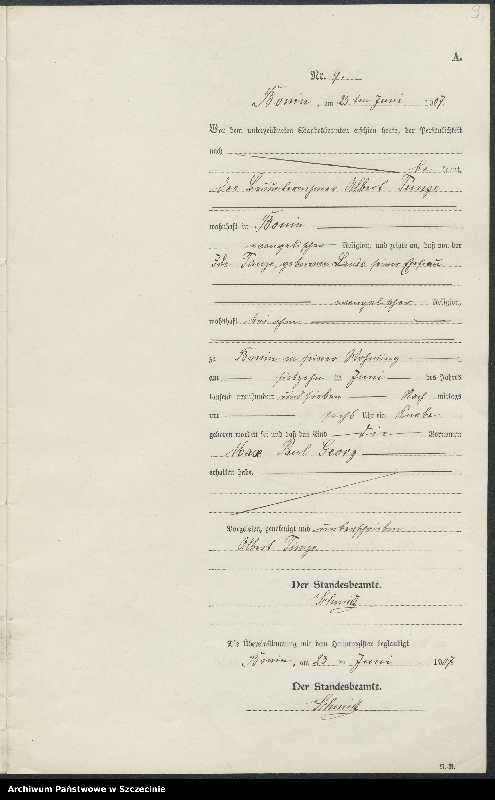 9
A.
Nr. 9.
Bonin, am 23ten Juni 1907.
Vor dem unterzeichneten Standesbeamten erschien heute, der Persönlichkeit
nach
be kannt,
der Albert Timge
wohnhaft in Bonin
evangelischer Religion, und zeigte an, daß von der
Timge, geborenen seiner Ehefrau
evangelischer Religion,
wohnhaft bei ihm
zu Bonin in seiner Wohnung
am siebzehn ten Juni des Jahres
tausend neunhundert und sieben Nach mittags
um sechs Uhr ein Knabe
geboren worden sei und daß das Kind die Vornamen
Max Paul Georg
erhalten habe.
Vorgelesen, genehmigt und unterschrieben
Albert Timge
Der Standesbeamte.
Schmidt
Die Übereinstimmung mit dem Hauptregister beglaubigt
Bonin, am 23 ten Juni 1907
Der Standesbeamte.
Schmidt
Archiwum Państwowe w Szczecinie